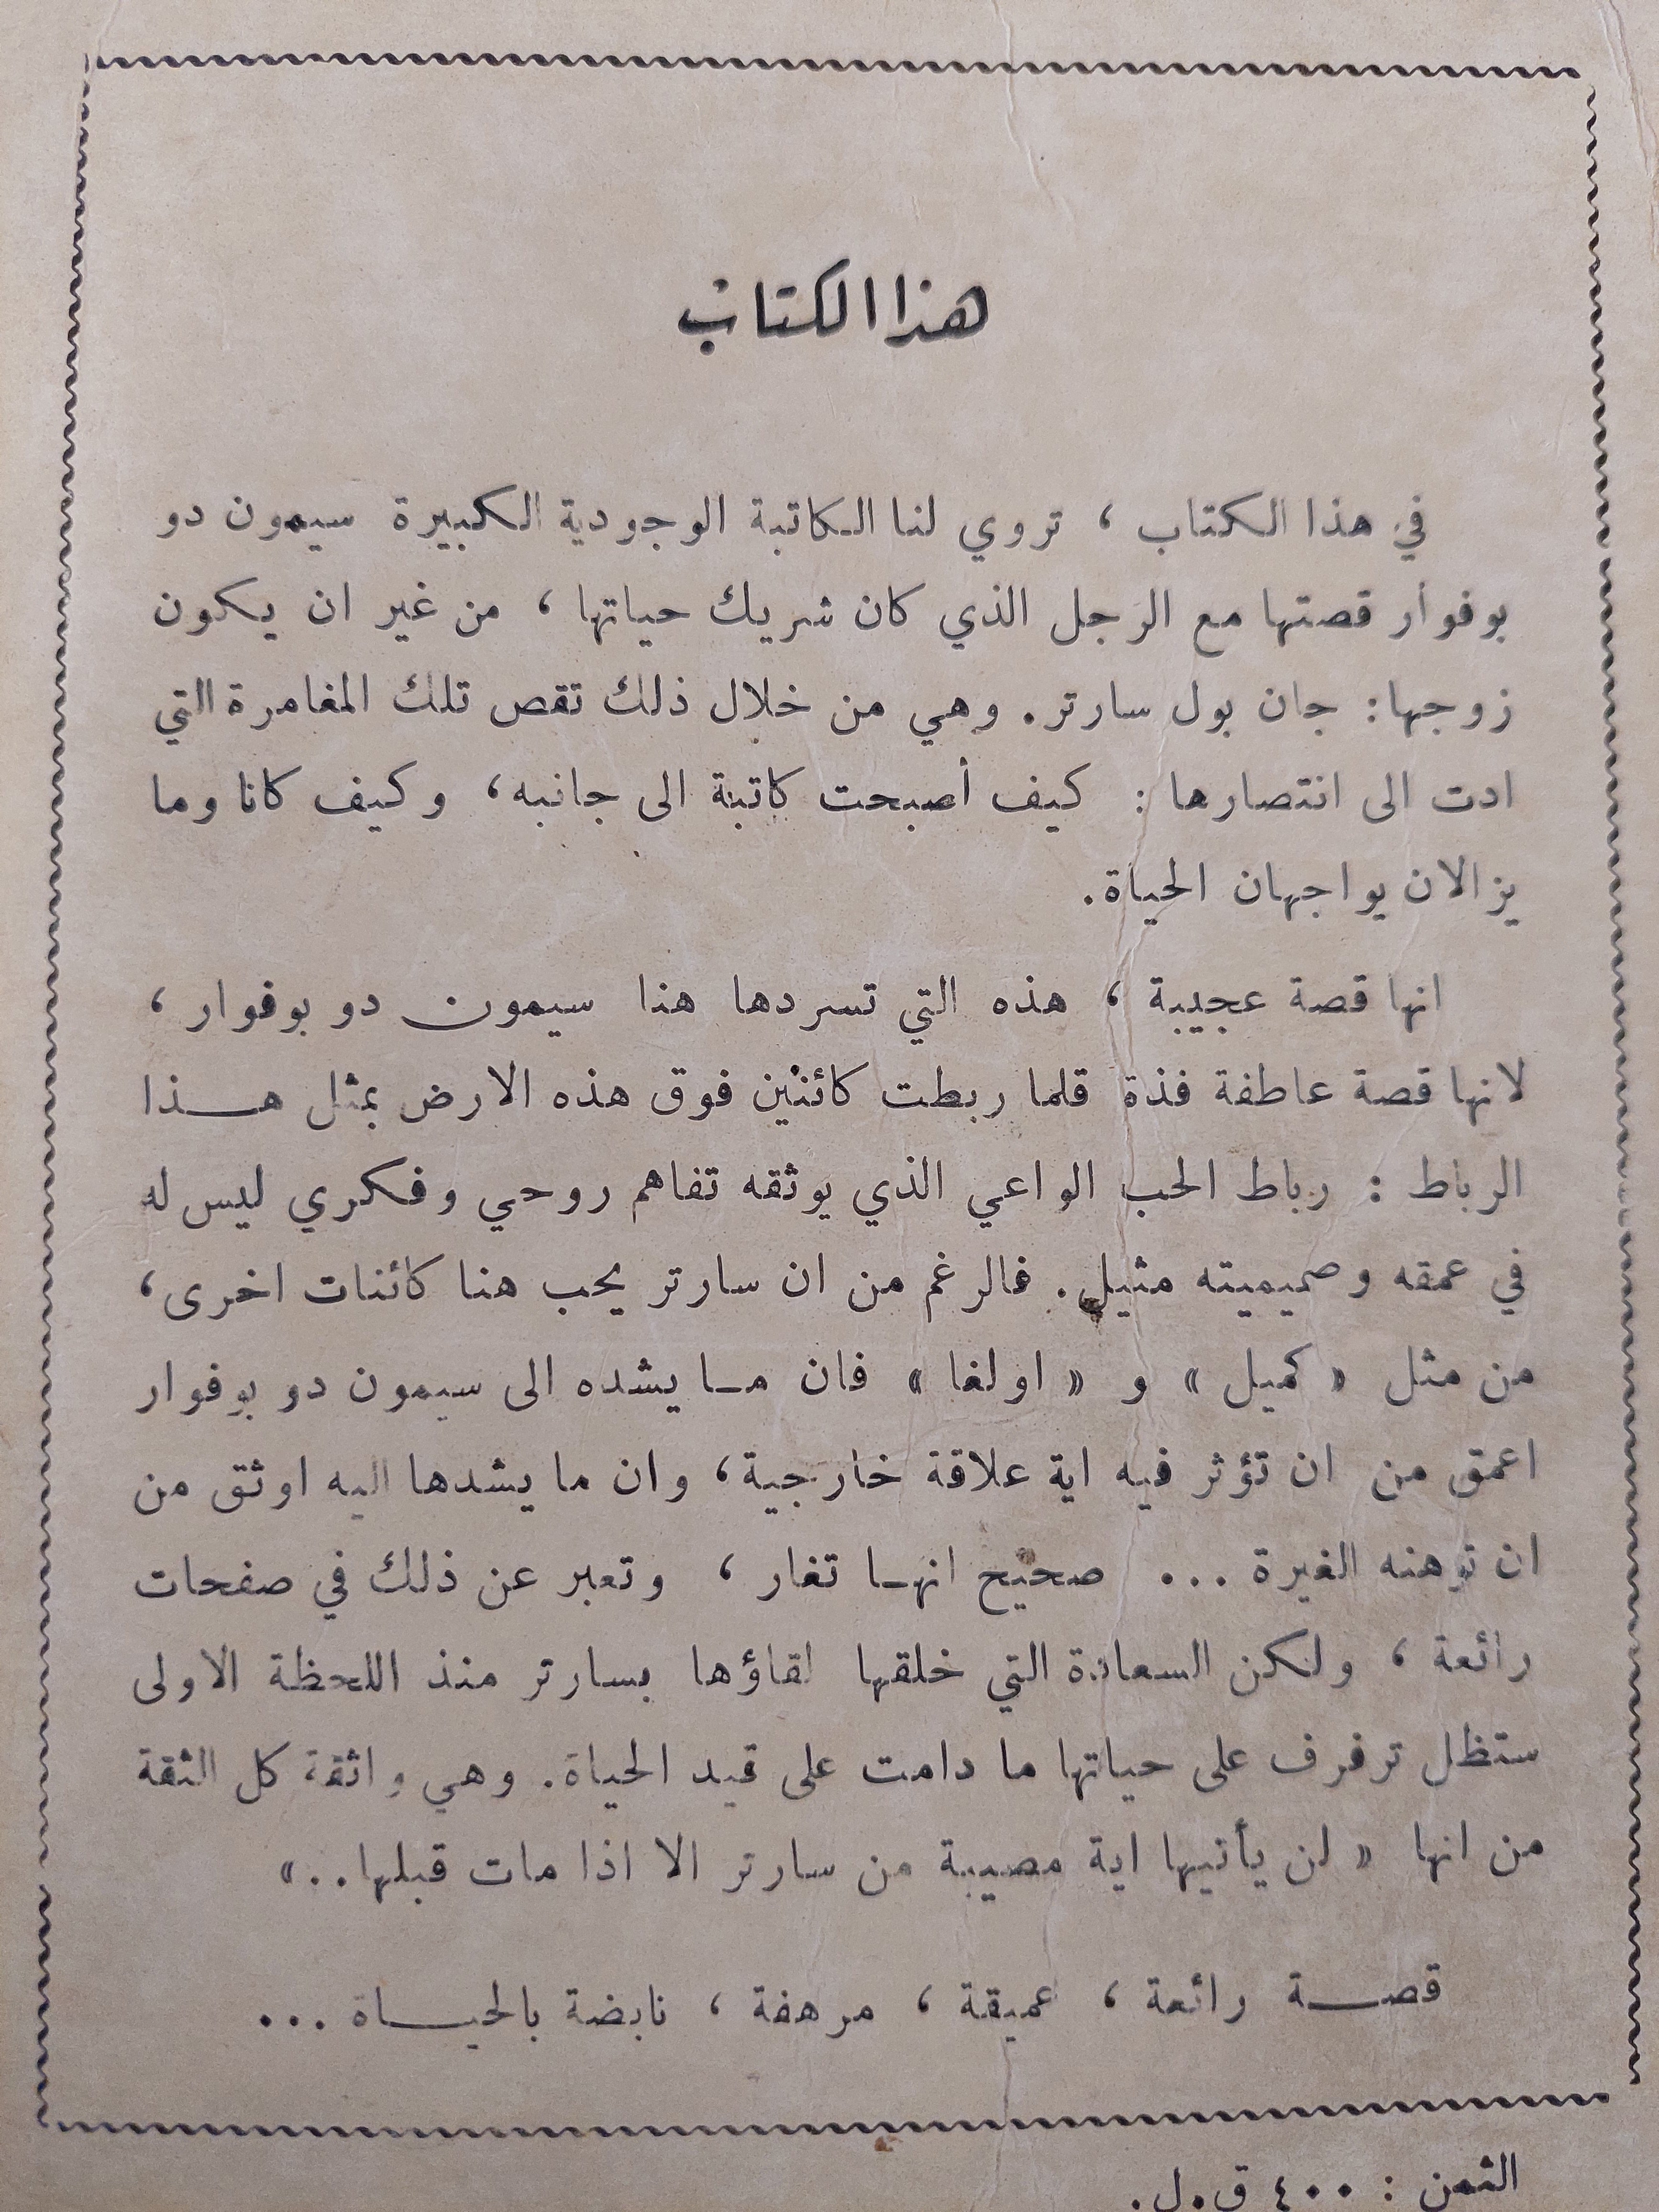 هذا الكتاب
في هذا الكتاب ، تروي لنا الكاتبة الوجودية الكبيرة سيمون دو
بوفوار قصتها مع الرجل الذي كان شريك حياتها ، من غير ان يكون
زوجها : جان بول سارتر . وهي من خلال ذلك تقص تلك المغامرة التي
ادت الى انتصارها : كيف أصبحت كاتبة الى جانبه ، وكيف كانا وما
يزالان يواجهان الحياة .
انها قصة عجيبة ، هذه التي تسردها هنا سيمون دو بوفوار ،
لانها قصة عاطفة فذة قلما ربطت كائنين فوق هذه الارض بمثل هـــذا
الرباط : رباط الحب الواعي الذي يوثقه تفاهم روحي وفكري ليس له
في عمقه وصميميته مثيل . فالرغم من ان سارتر يحب هنا كائنات اخرى ،
من مثل « كميل » و « اولغا » فان مـا يشده الى سيمون دو بوفوار
اعمق من ان تؤثر فيه اية علاقة خارجية ، وان ما يشدها اليه اوثق من
ان توهنه الغيرة ... صحيح انهـا تغار ، وتعبر عن ذلك في صفحات
رائعة ، ولكن السعادة التي خلقها لقاؤها بسارتر منذ اللحظة الاولى
ستظل ترفرف على حياتها ما دامت على قيد الحياة . وهي واثقة كل الثقة
من انها « لن يأتيها اية مصيبة من سارتر الا اذا مات قبلها .. »
قصـــة رائعة ، عميقة ، مرهفة ، نابضة بالحيـــاة ...
الثمن : ٤٠٠ ق.ل.